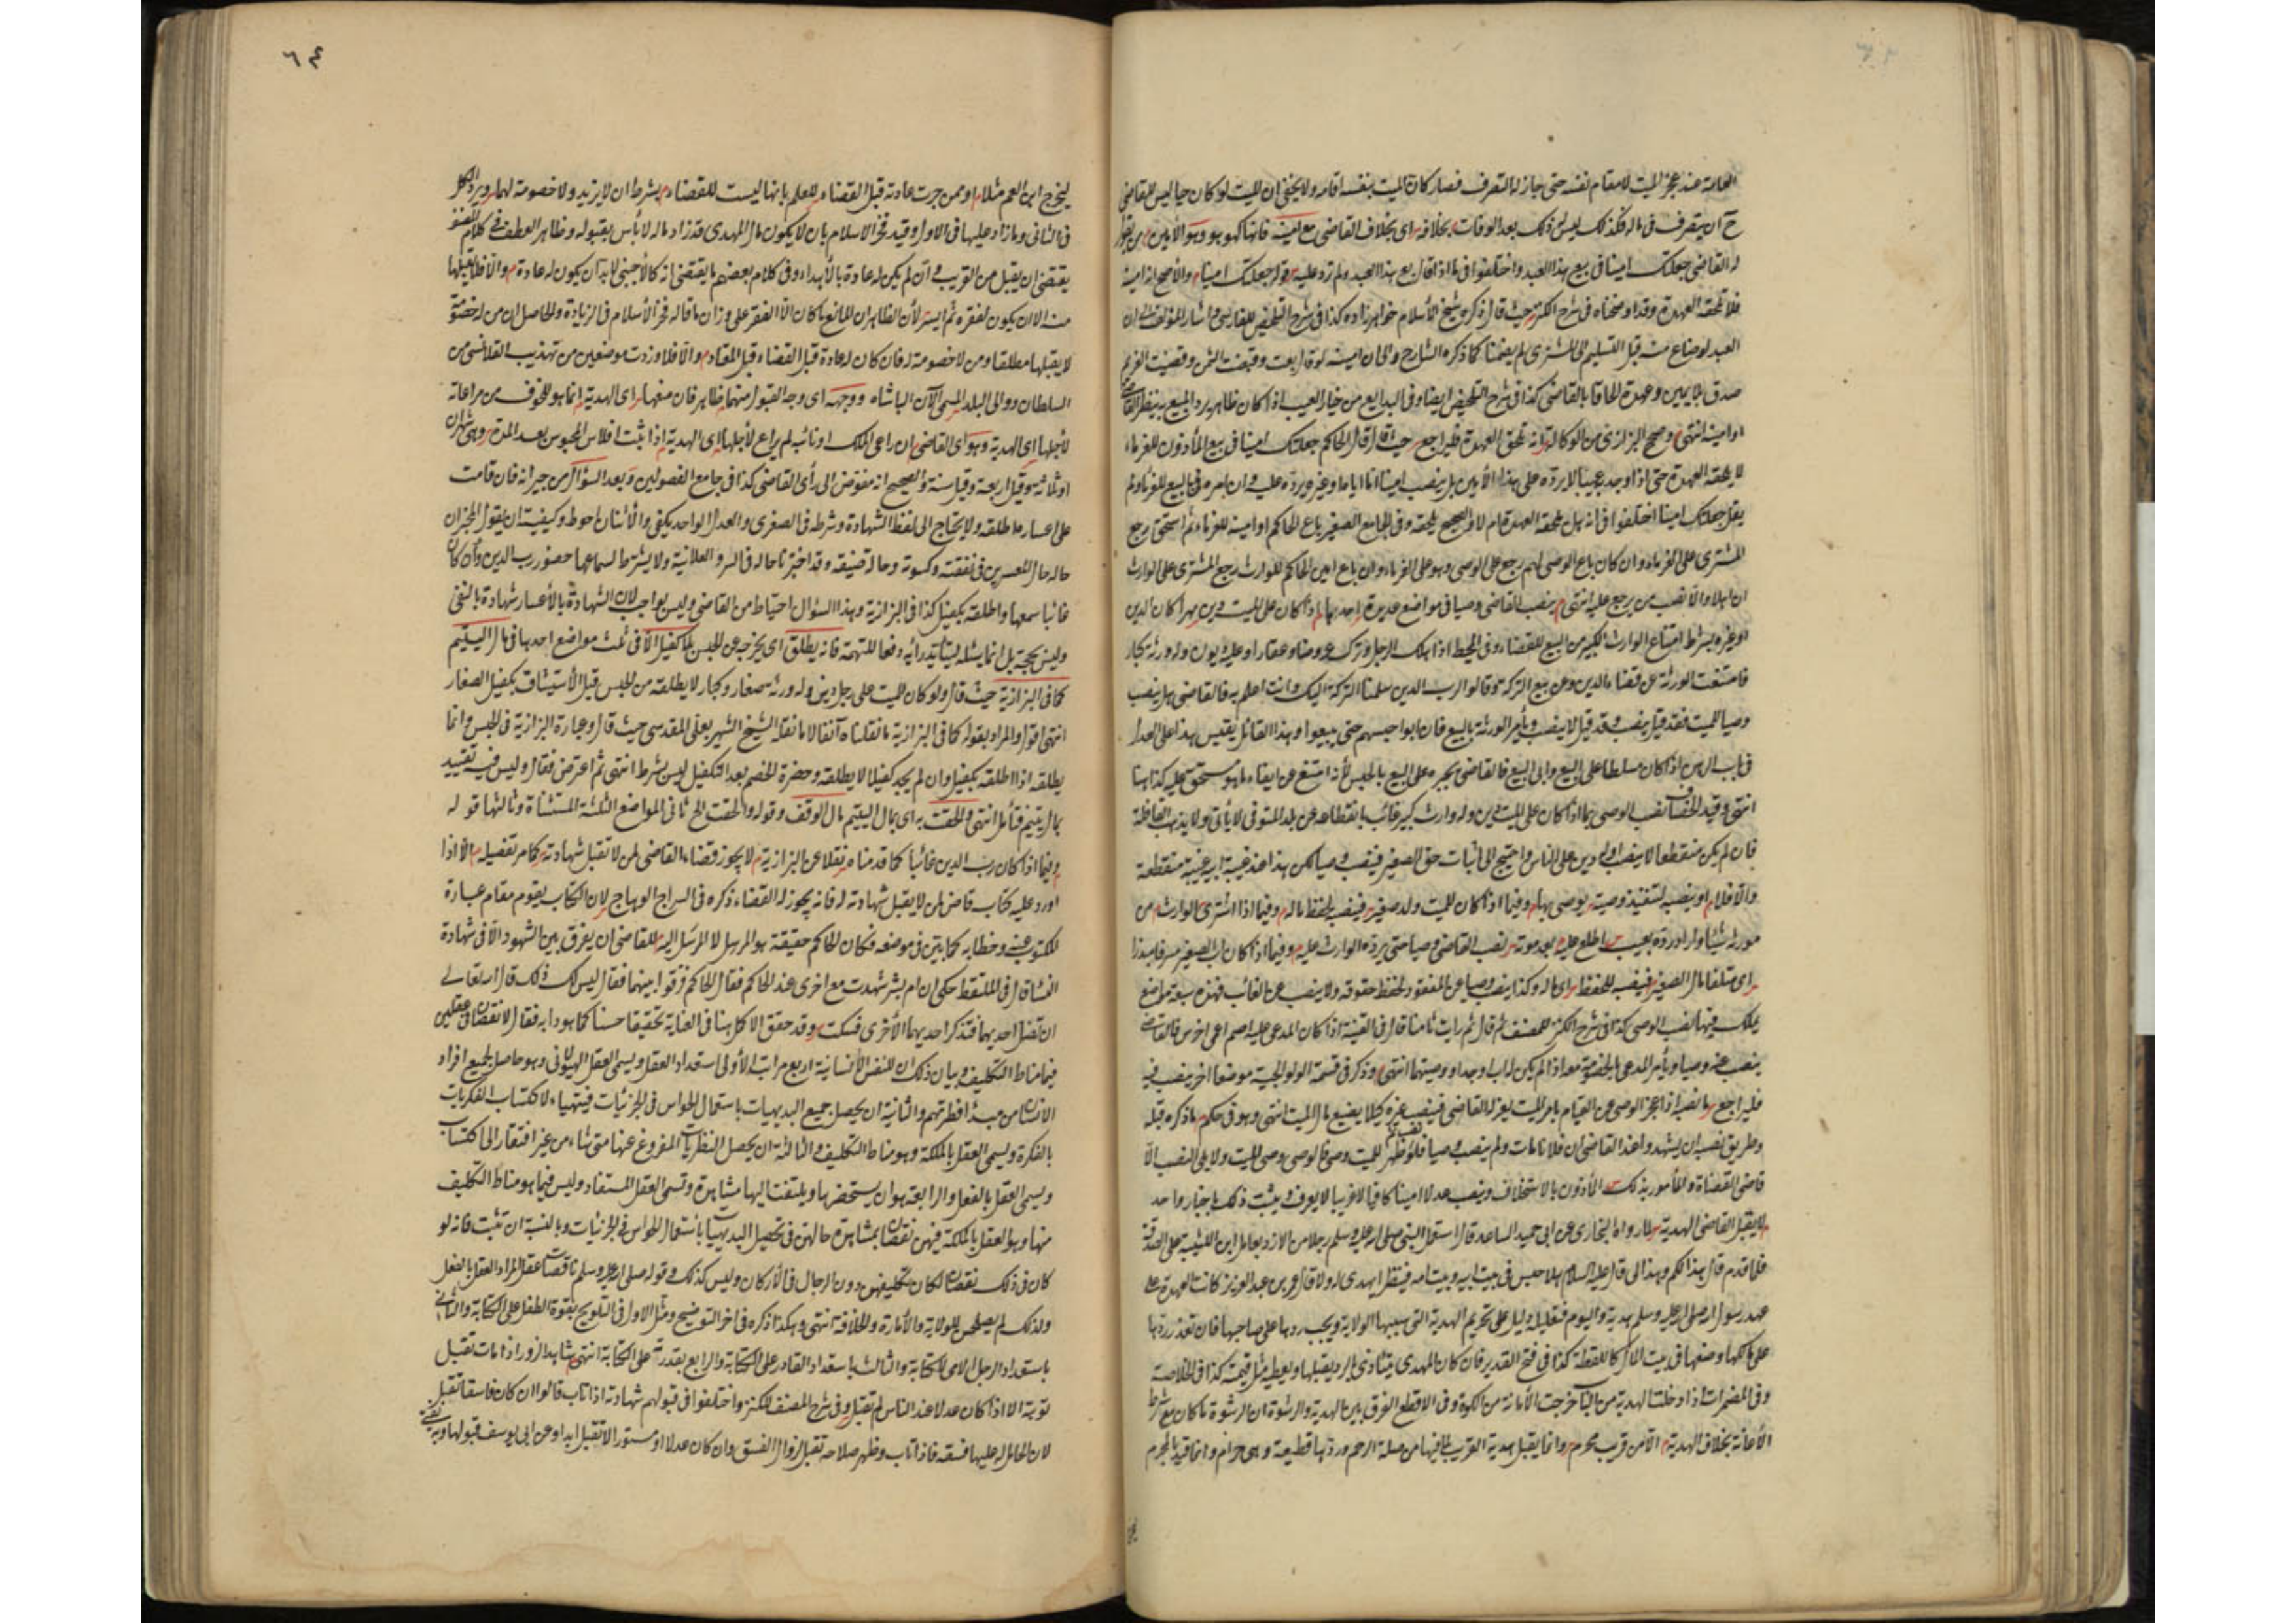 العامة عند عجز الميت لا مقام نفسه حتى جاز له التصرف فصار كان الميت بنفسه اقامه ولا يخفى ان الميت لو كان حيا ليس للقاضى
ان يتصرف فى ماله فكذلك ليس ذلك بعد الوفات بخلافه اى بخلاف القاضى مع امينه فانها كهو هو وهو الأمين من يقول
له القاضى جعلتك امينا فى بيع هذا العبد واختلفوا فيما اذا قال بع هذا العبد ولم يزد عليه قوله جعلتك امينا والأصح انه امينه
فلا تلحقه العهدة وقد اوضحناه فى شرح الكنز حيث قال ذكر شيخ الأسلام خواهر زاده كذا فى شرح التلخيص للفارسى واشار المؤلف الى ان
العبد لو ضاع منه قبل التسليم الى المشترى لم يضمنا كما ذكره الشارح والى ان امينه لو قال بعت وقبضت الثمن وقضيت الغريم
صدق بلا يمين وعهدة الحاقا بالقاضى كذا فى شرح التلخيص ايضا وفى البدايع من خيار العيب اذا كان ظاهر يرد المبيع ينظر القاضى
او امينه انتهى وصحح البزازى من الوكالة انه تلحق العهدة فليراجع حيث قال قال الحاكم جعلتك امينا فى بيع المأذون للغرماء
لا يلحقه العهدة حتى اذا وجد عيبا لا يرده على هذا الأمين بل ينصب امينا اما اياما وغيره يرده عليه وان امره فى المبيع للغرماء ولم
يقل جعلتك امينا اختلفوا فى انه هل تلحقه العهدة ام لا والصحيح تلحقه وفى الجامع الصغير باع الحاكم او امينه للغرماء ثم استحق رجع
المشترى على الغرماء وان كان باع الوصى لهم رجع على الوصى وهو على الغرماء وان باع امين الحاكم للوارث رجع المشترى على الوارث
ان اهلا والا نصب من يرجع عليه انتهى ينصب القاضى وصيا فى مواضع عديدة احدها اذا كان على الميت دين مهرا كان الدين
او غيره بشرط امتناع الوارث الكبير من البيع للقضاء وفى المحيط اذا هلك الرجل وترك عروضا وعقارا وعليه ديون وله ورثة كبار
فامتنعت الورثة عن قضاء الدين وعن بيع التركة وقالوا لرب الدين سلمنا التركة اليك وانت اعلم به فالقاضى هل ينصب
وصيا للميت فقد قيل ينصب وقد قيل لا ينصب ويأمر الورثة بالبيع فان ابوا حبسهم حتى يبيعوا وهذا القائل يقيس هذا على العدل
فى باب الرهن اذا كان مسلطا على البيع وابى البيع فالقاضى يجبره على البيع بالحبس لأنه امتنع عن ايفاء ما هو مستحق عليه كذا هنا
انتهى وقيد الخصاف نصب الوصى بما اذا كان على الميت دين وله وارث كبير غائب بانقطاعه عن بلد المتوفى لا يأتى ولا يذهب القافلة
فان لم يكن منقطعا لا ينصب او له دين على الناس واحتيج الى اثبات حق الصغير فينصب وصيا لكن هذا عند غيبة ابيه غيبة منقطعة
والا فلا او ينصبه لتنفيذ وصيته يوصى بها وفيما اذا كان للميت ولد صغير فينصب لحفظ ماله وفيما اذا اشترى الوارث من
مورثه شيئا واراد رده بعيب اطلع عليه بعد موته نصب القاضى وصيا حتى يرده الوارث عليه وفيما اذا كان اب الصغير مسرفا مبذرا
اى متلفا مال الصغير فينصب للحفظ اى ماله وكذا ينصب وصيا عن المفقود لحفظ حقوقه ولا ينصب عن الغائب فهذه سبعة مواضع
يملك فيها نصب الوصى كذا فى شرح الكنز للمصنف ثم قال ثم رايت ثامنا قال فى القنية اذا كان المدعى عليه اصم اعمى اخرس فالقاضى
ينصب عنه وصيا ويأمر المدعى بالخصومة معه اذا لم يكن له اب او جد او وصيهما انتهى وذكر فى قسمة الولوالجية موضعا اخر ينصب فيه
فليراجع ما نصبه اذا عجز الوصى عن القيام بامر الميت يعزله القاضى فينصب غيره كيلا يضيع مال الميت انتهى وهو فى حكم ما ذكره قبله
وطريق نصبه ان يشهدوا عند القاضى ان فلانا مات ولم ينصب وصيا فلو ظهر للميت وصى فالوصى وصى الميت ولا يلى النصب الا
قاضى القضاة والمأمور بذلك الأذون بالاستخلاف وينصب عدلا امينا كافيا لا غريبا لا يعرف ويثبت ذلك باخبار واحد
لا يقبل القاضى الهدية لما رواه البخارى عن ابى حميد الساعدى قال استعمل النبى صلى الله عليه وسلم رجلا من الازد يقال ابن اللتبية على الصدقة
فلما قدم قال هذا لكم وهذا لى قال عليه السلام هلا جلس فى بيت ابيه وبيت امه فينظر ايهدى له ولا قال عمر بن عبد العزيز كانت الهدية على
عهد رسول الله صلى الله عليه وسلم هدية واليوم فتعليله دليل على تحريم الهدية التى سببها الولاية ويجب ردها على صاحبها فان تعذر ردها
على مالكها وضعها فى بيت المال كاللقطة كذا فى فتح القدير فان كان المهدى يتأذى بالرد يقبلها ويعطيه مثل قيمته كذا فى الخلاصة
وفى المضمرات اذا دخلت الهدية من الباب خرجت الأمانة من الكوة وفى الاقطع الفرق بين الهدية والرشوة ان الرشوة ما كان مع شرط
الأعانة بخلاف الهدية الا من قريب محرم وانما يقبل هدية القريب لما فيها من صلة الرحم وردها قطيعة وهى حرام وانما قيد بالمحرم
٦٤
ليخرج ابن العم مثلا او ممن جرت عادته قبل القضاء للعلم بانها ليست للقضاء بشرط ان لا يزيد ولا خصومة لهما ويرد الكل
فى الثانى وما زاد عليها فى الاول وقيد فخر الاسلام بان لا يكون مال المهدى قد زاد ماله لا بأس بقبوله وظاهر العطف فى كلام المصنف
يقتضى ان يقبل من القريب وان لم يكن له عادة بالأهداء وفى كلام بعضهم ما يقتضى انه كالأجنبى لا بد ان يكون له عادة والا فلا يقبلها
منه الا ان يكون لفقره ثم ايسر لأن الظاهر ان المانع ما كان الا الفقر على وزان ما قاله فخر الأسلام فى الزيادة والحاصل ان من له خصومة
لا يقبلها مطلقا ومن لا خصومة له فان كان له عادة قبل القضاء قبل المعتاد والا فلا وزدت موضعين من تهذيب القلانسى من
السلطان ووالى البلد المسمى الآن الباشاه ووجهه اى وجه القبول منهما ظاهر فان منعها اى الهدية انما هو للخوف من مراعاته
لأجلها اى الهدية وهو اى القاضى ان راعى الملك او نائبه لم يراع لأجلها اى الهدية اذا ثبت افلاس المحبوس بعد المدة وهى شهران
او ثلاثة وقيل اربعة وقيل ستة والصحيح انه مفوض الى رأى القاضى كذا فى جامع الفصولين وبعد السؤال من جيرانه فان قامت
على اعساره ما طلقه ولا يحتاج الى لفظ الشهادة وشرطه فى الصغرى والعدل الواحد يكفى والأثنان احوط وكيفيته ان يقول المخبر ان
حاله حال المعسرين فى نفقته وكسوته وحاله ضيقة وقد اختبرنا حاله فى السر والعلانية ولا يشترط لسماعها حضور رب الدين وان كان
غائبا سمعها واطلقه بكفيل كذا فى البزازية وهذا السؤال احتياط من القاضى وليس بواجب لان الشهادة بالأعسار شهادة بالنفى
وليس بحجة بل انما يسئله ليتأيد رأيه دفعا للتهمة فانه يطلق اى يخرجه عن الحبس بلا كفيل الا فى ثلث مواضع احدها فى مال اليتيم
كما فى البزازية حيث قال ولو كان للميت على رجل دين وله ورثة صغار وكبار لا يطلقه من الحبس قبل الأستيثاق بكفيل الصغار
انتهى اقول والمراد بقوله كما فى البزازية ما نقلناه آنفا لا ما نقله الشيخ الشهير بعلى المقدسى حيث قال وعبارة البزازية فى الحبس وانما
يطلقه اذا اطلقه بكفيل وان لم يجد كفيلا لا يطلقه وحضرة الخصم بعد التكفيل ليس بشرط انتهى ثم اعترض فقال وليس فيه تقييد
بمال يتيم فتأمل انتهى والحقت به اى بمال اليتيم مال الوقف وقوله والحقت الخ ثانى المواضع الثلثة المستثناة وثالثها قوله
وفيما اذا كان رب الدين غائبا كما قدمناه نقلا عن البزازية لا يجوز قضاء القاضى لمن لا تقبل شهادته كما مر تفصيله الا اذا
اورد عليه كتاب قاض لمن لا يقبل شهادته له فانه يجوز له القضاء ذكره فى السراج الوهاج لان الكتاب يقوم مقام عبارة
المكتوب عنه وخطابه كما بين فى موضعه فكان الحاكم حقيقة هو المرسل لا المرسل اليه للقاضى ان يفرق بين الشهود الا فى شهادة
النساء قال فى الملتقط حكى ان ام بشر شهدت مع اخرى عند الحاكم فقال الحاكم فرقوا بينهما فقال ليس لك ذلك قال الله تعالى
ان تضل احديهما فتذكر احديهما الأخرى فسكت وقد حقق الاكمل هنا فى العناية تحقيقا حسنا كما هو دابه فقال لا نقصان فى عقلهن
فيما مناط التكليف وبيان ذلك ان للنفس الأنسانية اربع مراتب الأولى استعداد العقل ويسمى العقل الهيولانى وهو حاصل لجميع افراد
الانسان من مبدأ فطرتهم والثانية ان يحصل جميع البديهيات باستعمال الحواس فى الجزئيات فيتهياء لاكتساب الفكريات
بالفكرة ويسمى العقل بالملكة وهو مناط التكليف والثالثة ان يحصل النظريات المفروغ عنها متى شاء من غير افتقار الى اكتساب
ويسمى العقل بالفعل والرابعة هو ان يستحضرها ويلتفت اليها مشاهدة وتسمى العقل المستفاد وليس فيما هو مناط التكليف
منها وهو العقل بالملكة فيهن نقصان بمشاهدة حالتهن فى تحصيل البديهيات باستعمال الحواس فى الجزئيات وبالنسبة ان تثبت فانه لو
كان فى ذلك نقصان لكان تكليفهن دون الرجال فى الأركان وليس كذلك وقوله صلى الله عليه وسلم ناقصات عقل المراد العقل بالفعل
ولذلك لم يصلحن للولاية والأمارة والخلافة انتهى وهكذا ذكره فى اخر التوضيح ومثل الاول فى التلويح بقوة الطفل على الكتابة والثانى
باستعداد الرجل الامى للكتابة والثالث باستعداد القادر على الكتابة والرابع بقدرته على الكتابة انتهى شاهد الزور اذا مات تقبل
توبته الا اذا كان عدلا عند الناس لم تقبل وفى شرح المصنف للكنز واختلفوا فى قبولهم شهادته اذا تاب قالوا ان كان فاسقا تقبل
لان الحامل له عليها فسقه فاذا تاب وظهر صلاحه تقبل لزوال الفسق وان كان عدلا او مستورا لا تقبل ابدا وعن ابى يوسف قبولها وبه يفتى